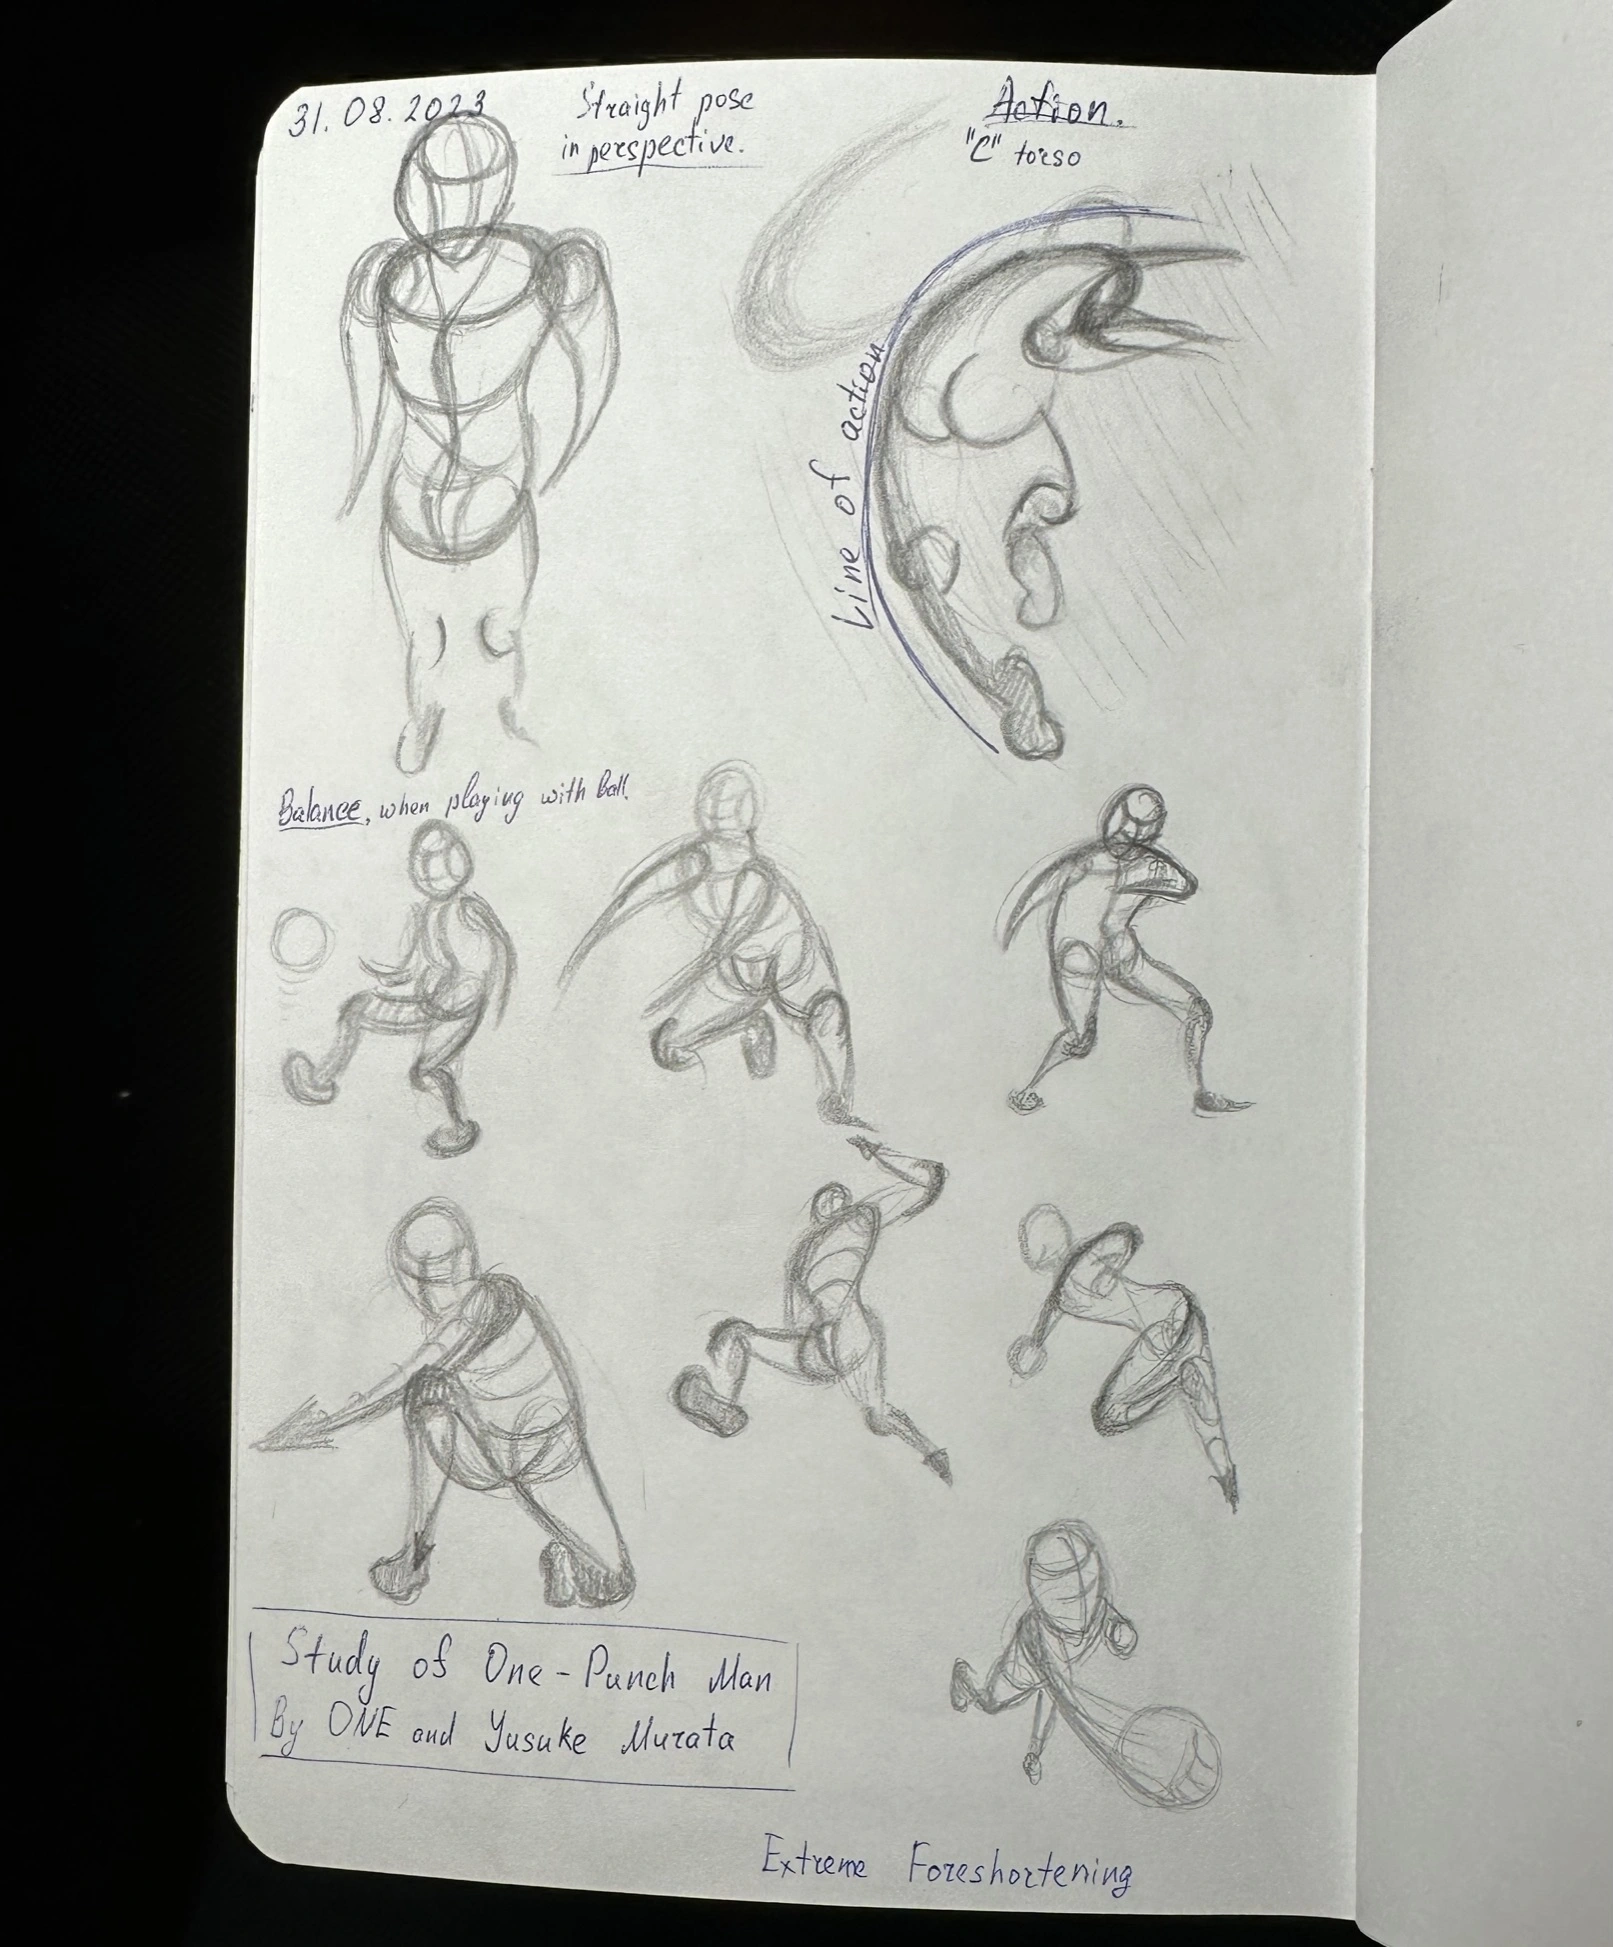 31. 08. 2023
Straight pose
in perspective.
Action.
"C" torso
Line of action
Balance, when playing with Ball.
Study of One-Punch Man
By ONE and Yusuke Murata
Extreme Foreshortening